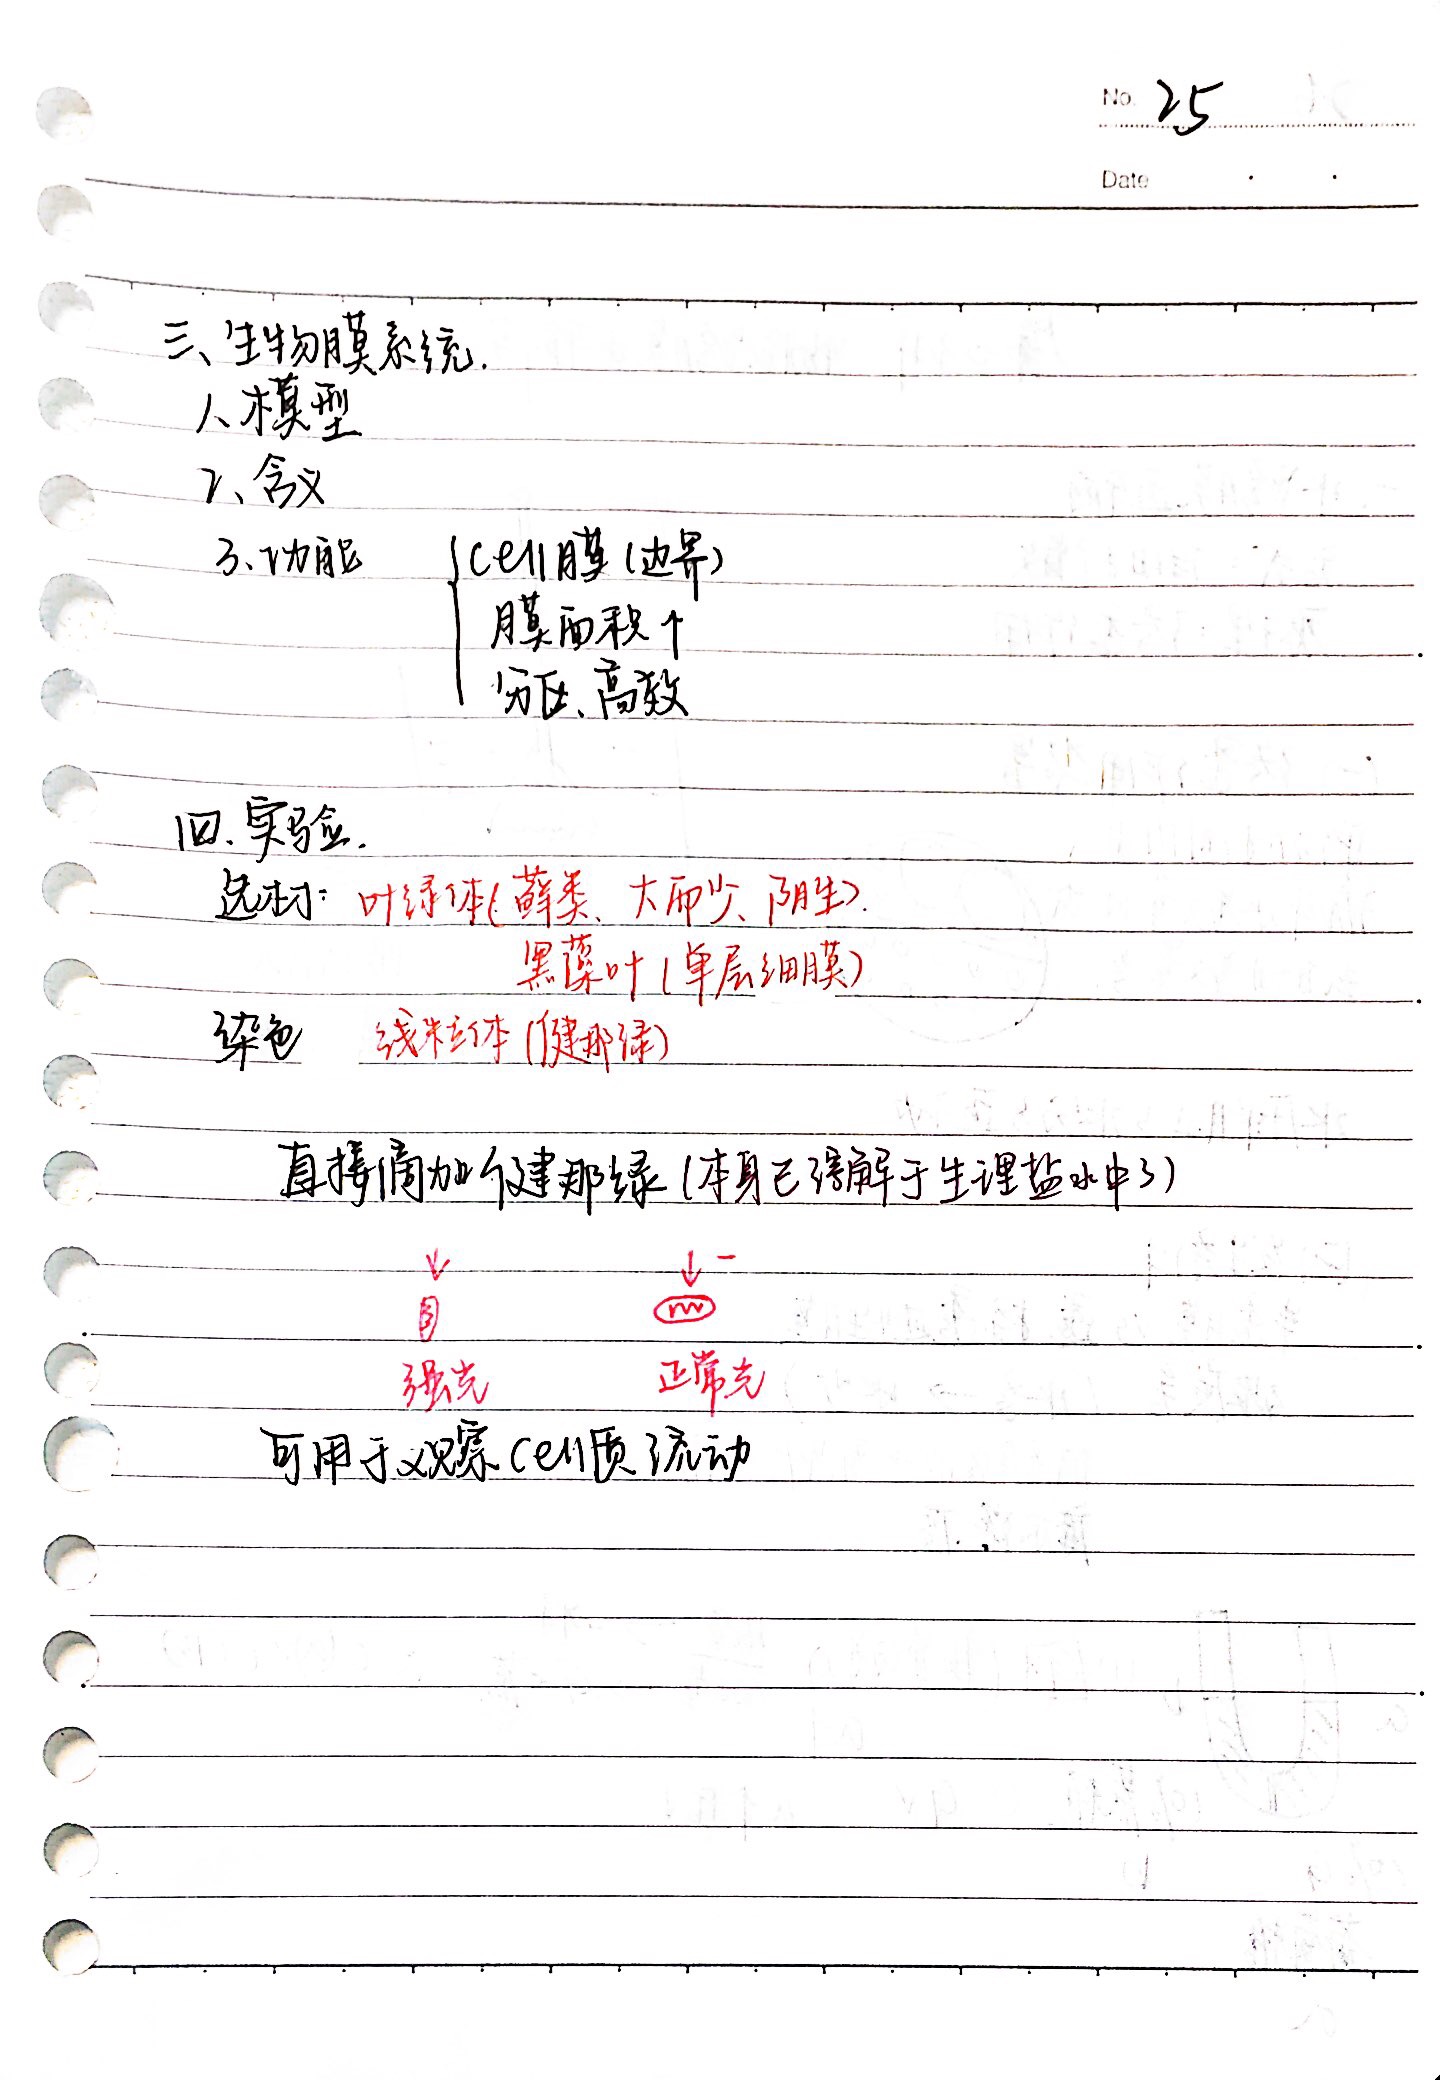 No. 25
Date
三、生物膜系统.
1、模型
2、含义
3、功能 { cell膜(边界)
膜面积↑
分区、高效
四、实验.
选材: 叶绿体(藓类、大而少、阴生).
黑藻叶(单层细膜)
染色 线粒体(健那绿)
直接滴加健那绿(本身已溶解于生理盐水中了)
强光 正常光
可用于观察cell质流动